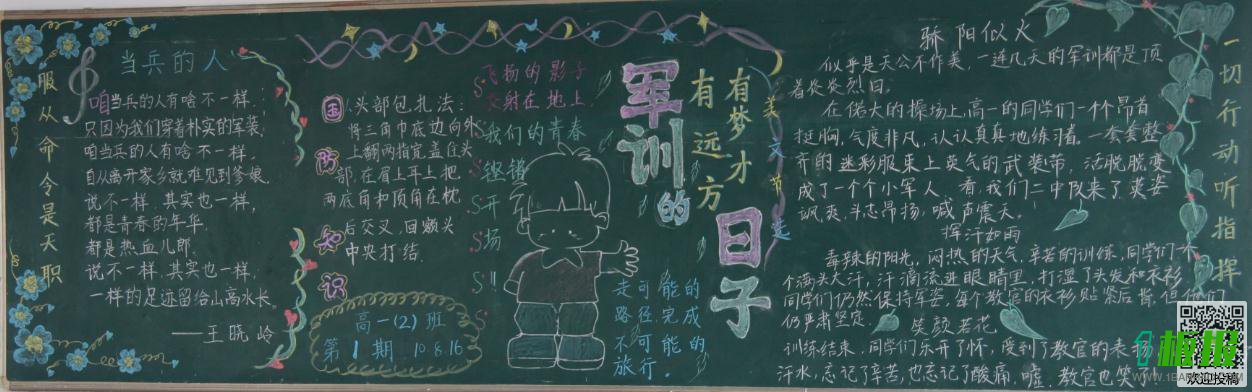 服从命令是天职
当兵的人
咱当兵的人有啥不一样:
只因为我们穿着朴实的军装.
咱当兵的人有啥不一样,
自从离开家乡就难见到爹娘.
说不一样.其实也一样,
都是青春的年华.
都是热血儿郎.
说不一样.其实也一样.
一样的足迹留给山高水长.
——王晓岭
国防知识
头部包扎法:
将三角巾底边向外
上翻两指宽盖住头
部.在眉上耳上把
两底角和顶角在枕
后交叉,回额头
中央打结.
高一(2)班
第1期 10.8.16
飞扬的影子
交射在地上
我们的青春
继错
开
场
军训的日子
有梦才
有远方
走路不旅
可径可行
能完能.
的成的
美文节选
骄阳似火
似乎是天公不作美,一连几天的军训都是顶
着炎炎烈日。
在偌大的操场上,高一的同学们一个个昂首
挺胸,气度非凡,认认真真地练习着.一套套整
齐的迷彩服束上英气的武装带,活脱脱变
成了一个个小军人.看,我们二中队来了,英姿
飒爽.斗志昂扬,喊声震天。
挥汗如雨
毒辣的阳光,闷热的天气.辛苦的训练,同学们个
个满头大汗,汗滴流进眼睛里,打湿了头发和衣衫
同学们仍然保持军姿,每个教官的衣衫贴紧后背,但他们
仍严肃坚定.
笑颜若花
训练结束,同学们乐开了怀,
汗水,忘记了辛苦,也忘记了酸痛,嘘,教官也笑
一切行动听指挥
1板报
WWW.1BANBAO.COM
欢迎投稿